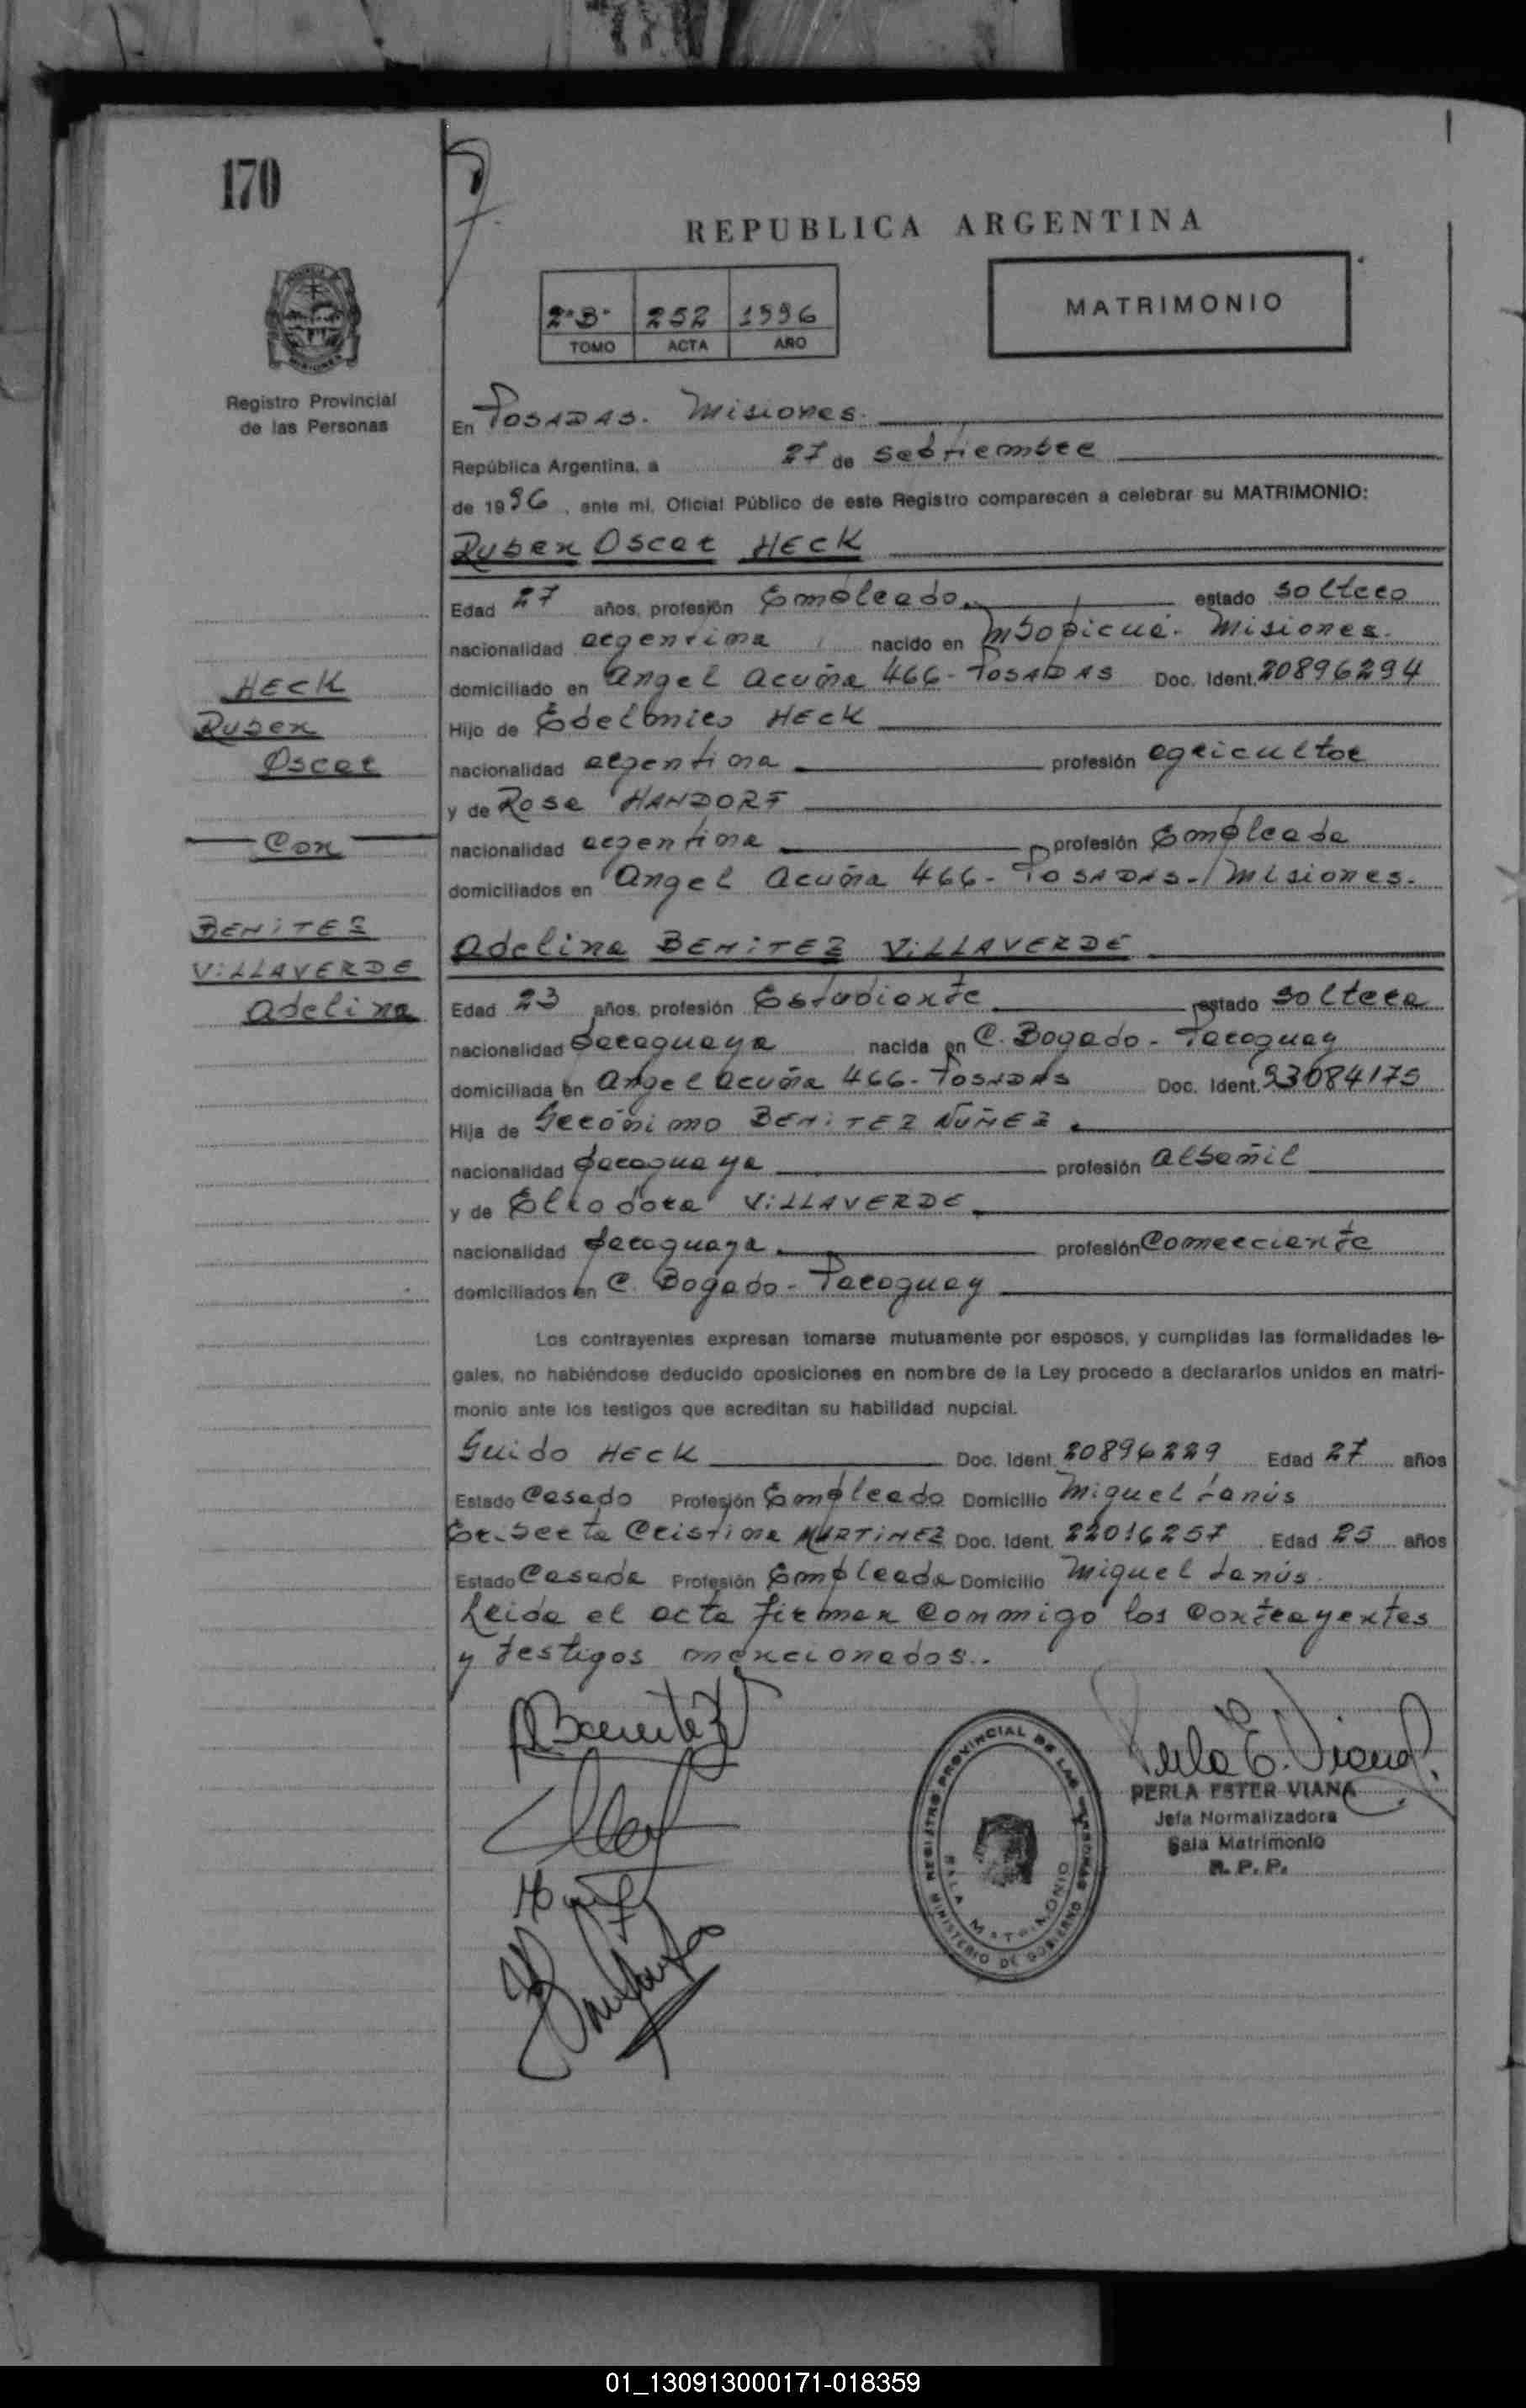 170
REPUBLICA ARGENTINA
2º B° 252 1996
TOMO ACTA AÑO
MATRIMONIO
Registro Provincial
de las Personas
En Posadas. Misiones.
República Argentina, a 27 de septiembre
de 1996, ante mi, Oficial Público de este Registro comparecen a celebrar su MATRIMONIO:
Ruben Oscar HECK
Edad 27 años, profesión Empleado. estado soltero
nacionalidad argentina nacido en Mbopicuá. Misiones.
domiciliado en Angel Acuña 466 - Posadas Doc. Ident. 20896294
Hijo de Edelmiro HECK
nacionalidad argentina profesión agricultor
y de Rosa HANDORF
nacionalidad argentina profesión Empleada
domiciliados en Angel Acuña 466 - Posadas - Misiones.
HECK
Ruben
Oscar
Con
BENITEZ
VILLAVERDE
Adelina
Adelina BENITEZ VILLAVERDE
Edad 23 años, profesión Estudiante estado soltera
nacionalidad paraguaya nacida en C. Bogado - Paraguay
domiciliada en Angel Acuña 466 - Posadas Doc. Ident. 93084175
Hija de Gerónimo BENITEZ NUÑEZ
nacionalidad paraguaya profesión albañil
y de Eliodora VILLAVERDE
nacionalidad paraguaya profesión Comerciante
domiciliados en C. Bogado - Paraguay
Los contrayentes expresan tomarse mutuamente por esposos, y cumplidas las formalidades le-
gales, no habiéndose deducido oposiciones en nombre de la Ley procedo a declararlos unidos en matri-
monio ante los testigos que acreditan su habilidad nupcial.
Guido HECK Doc. Ident. 20896229 Edad 27 años
Estado Casado Profesión Empleado Domicilio Miguel Lanús
Cristina MARTINEZ Doc. Ident. 22016257 Edad 25 años
Estado Casada Profesión Empleada Domicilio Miguel Lanús.
Leida el acta firman conmigo los contrayentes
y testigos mencionados.
Perla E. Viana
PERLA ESTER VIANA
Jefa Normalizadora
Sala Matrimonio
R. P. P.
REGISTRO PROVINCIAL DE LAS PERSONAS
SALA MATRIMONIO
MINISTERIO DE GOBIERNO
01_130913000171-018359